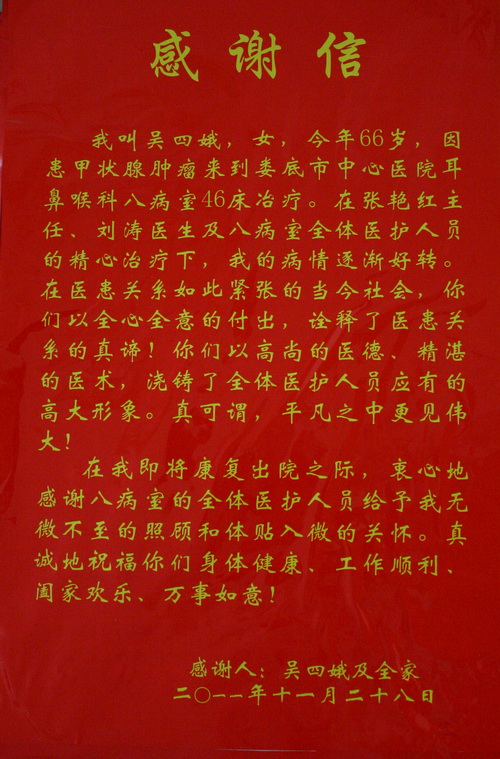 感谢信
我叫吴四娥，女，今年66岁，因
患甲状腺肿瘤来到娄底市中心医院耳
鼻喉科八病室46床治疗。在张艳红主
任、刘涛医生及八病室全体医护人员
的精心治疗下，我的病情逐渐好转。
在医患关系如此紧张的当今社会，你
们以全心全意的付出，诠释了医患关
系的真谛！你们以高尚的医德、精湛
的医术，浇铸了全体医护人员应有的
高大形象。真可谓，平凡之中更见伟
大！
在我即将康复出院之际，衷心地
感谢八病室的全体医护人员给予我无
微不至的照顾和体贴入微的关怀。真
诚地祝福你们身体健康、工作顺利、
阖家欢乐、万事如意！
感谢人：吴四娥及全家
二〇一一年十一月二十八日